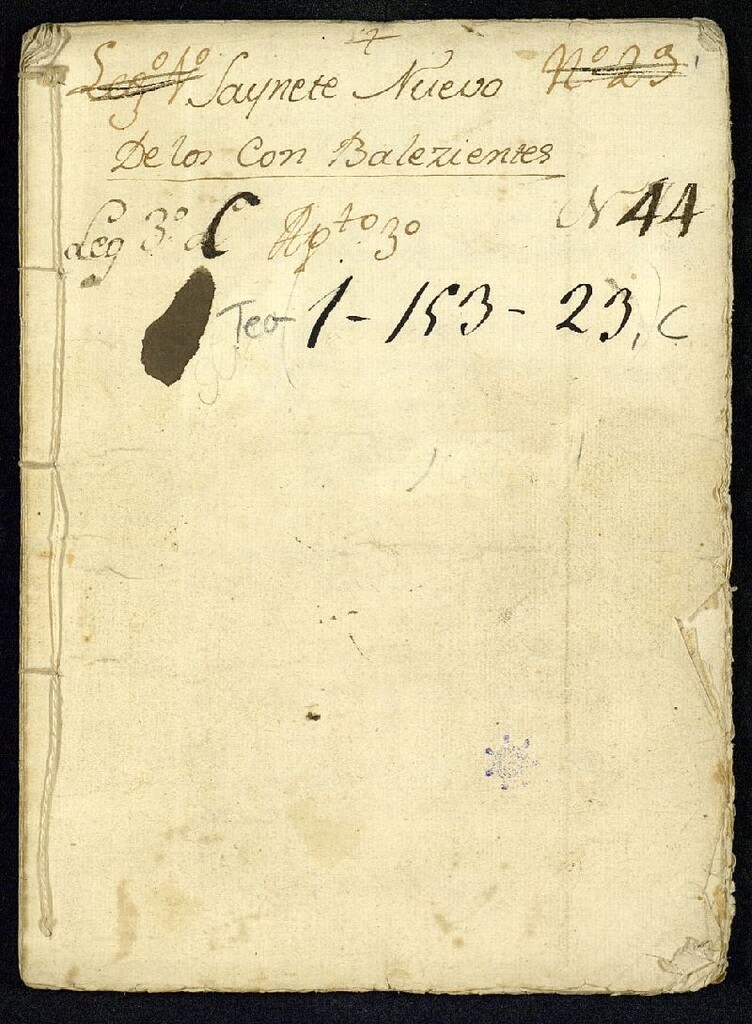 Leg.º 1º Saynete Nuevo Nº 23
De los Con Balezientes
Leg 3º C Ap.to 3º N 44
Tea (1-153-23, C)